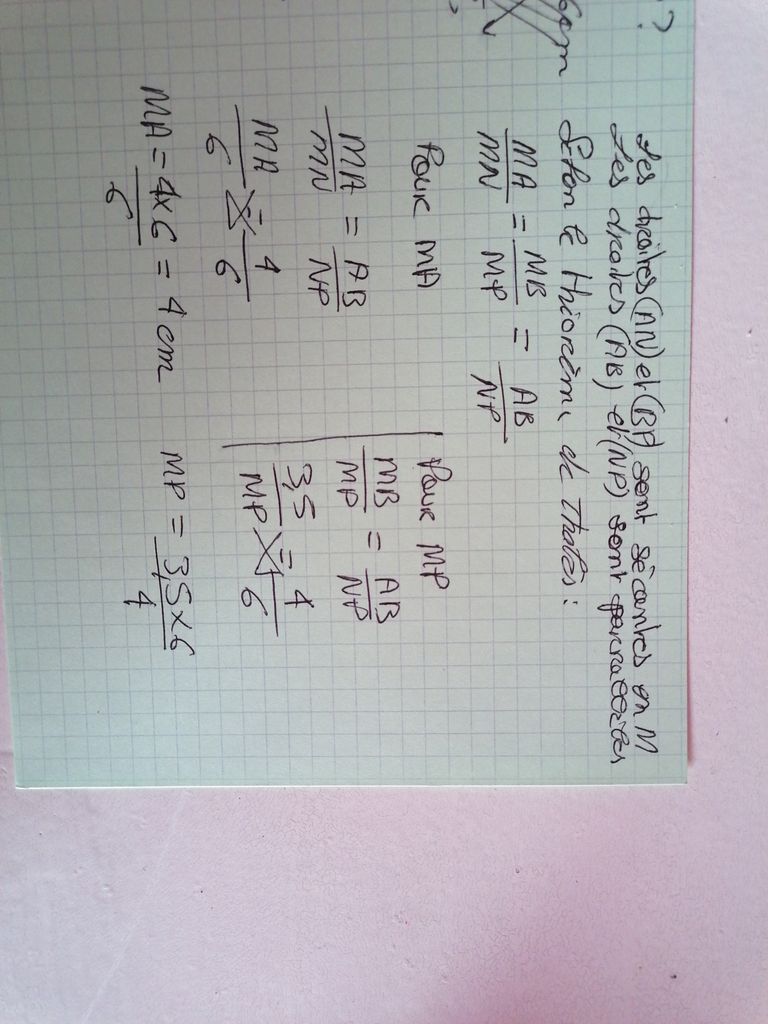 ?
6cm
Les droites (AN) et (BP) sont sécantes en M
Les droites (AB) et (NP) sont parrallèles
Selon le théorème de Thalès :
MA/MN = MB/MP = AB/NP
Pour MA
MA/MN = AB/NP
MA/6 = 4/6
MA = 4x6/6 = 4 cm
Pour MP
MB/MP = AB/NP
3,5/MP = 4/6
MP = 3,5x6/4